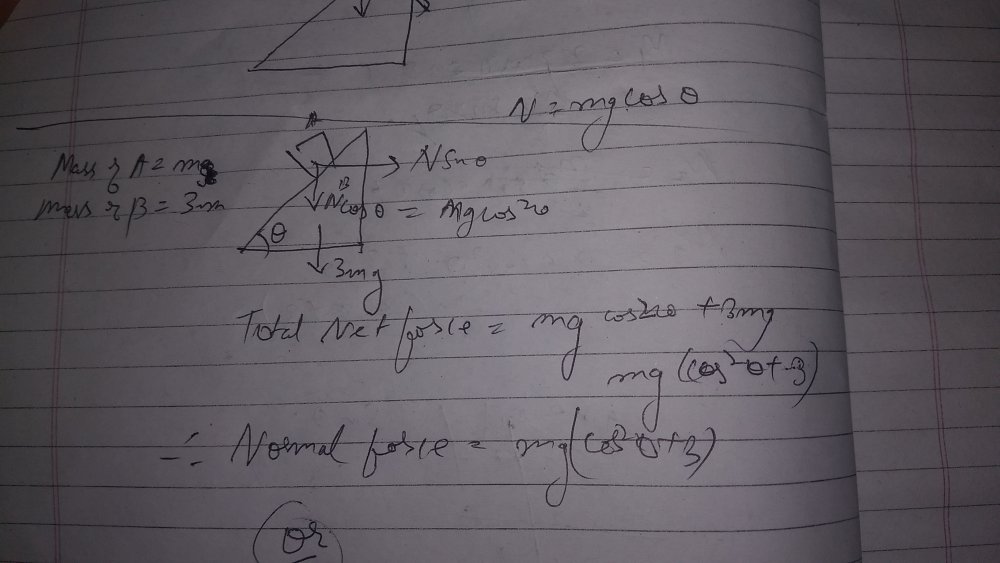 N = mg cos θ
A
Mass of A = m
→ N sin θ
mass of B = 3m
B
N cos θ = Mg cos²θ
θ
3mg
Total Net force = mg cos²θ + 3mg
mg (cos²θ + 3)
∴ Normal force = mg (cos²θ + 3)
Or